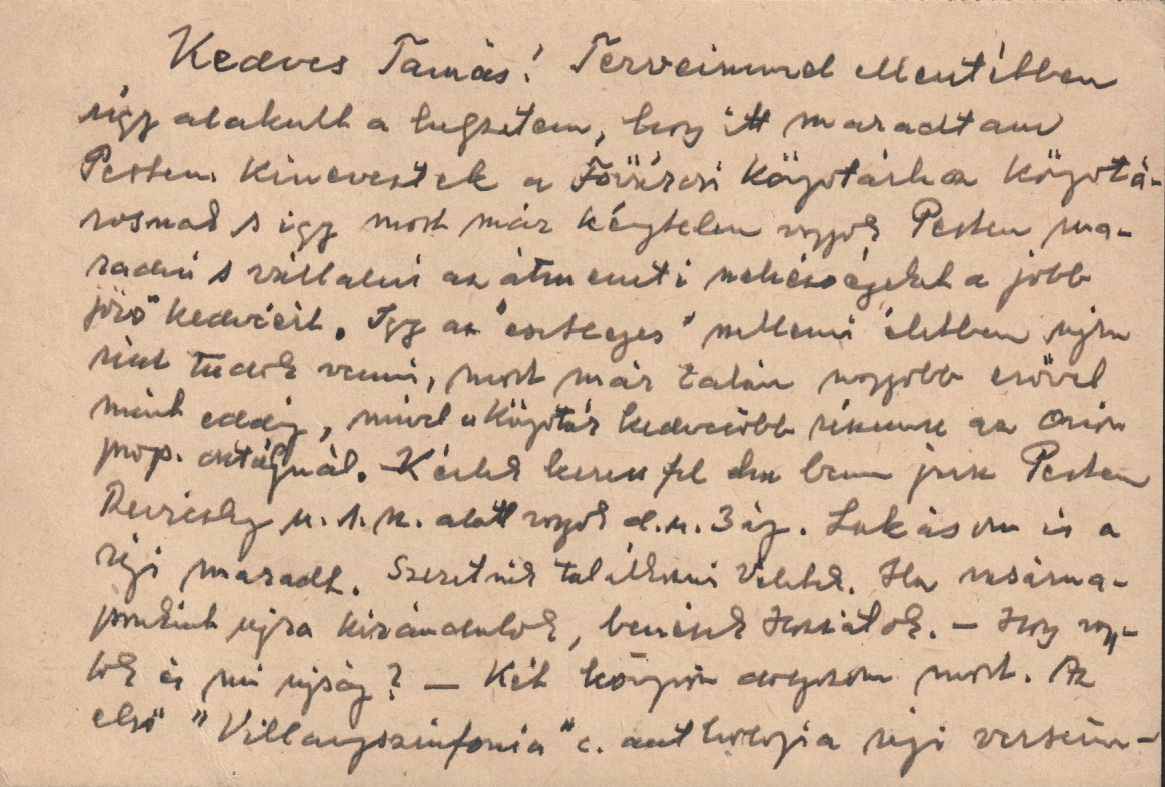 Kedves Tamás! Terveimmel ellentétben
úgy alakult a helyzetem, hogy itt maradtam
Pesten. Kineveztek a Fővárosi Könyvtárhoz könyvtá-
rosnak s így most már kénytelen vagyok Pesten ma-
radni s vállalni az átmeneti nehézségeket a jobb
jövő kedvéért. Így az esetleges szellemi életben újra
részt tudok venni, most már talán nagyobb erővel
mint eddig, mivel a Könyvtár kedvezőbb részemre az Orion
prop. osztálynál. Kérlek keress fel ha benn jársz Pesten
Reviczky u. 1. sz. alatt vagyok d.u. 3 ig. Lakásom is a
régi maradt. Szeretnék találkozni Veletek. Ha vasárna-
ponként újra kirándulok, benézek Hozzátok. — Hogy vagy-
tok és mi újság? — Két könyvön dolgozom most. Az
első "Villanyszinfonia" c. anthologia régi verseim-